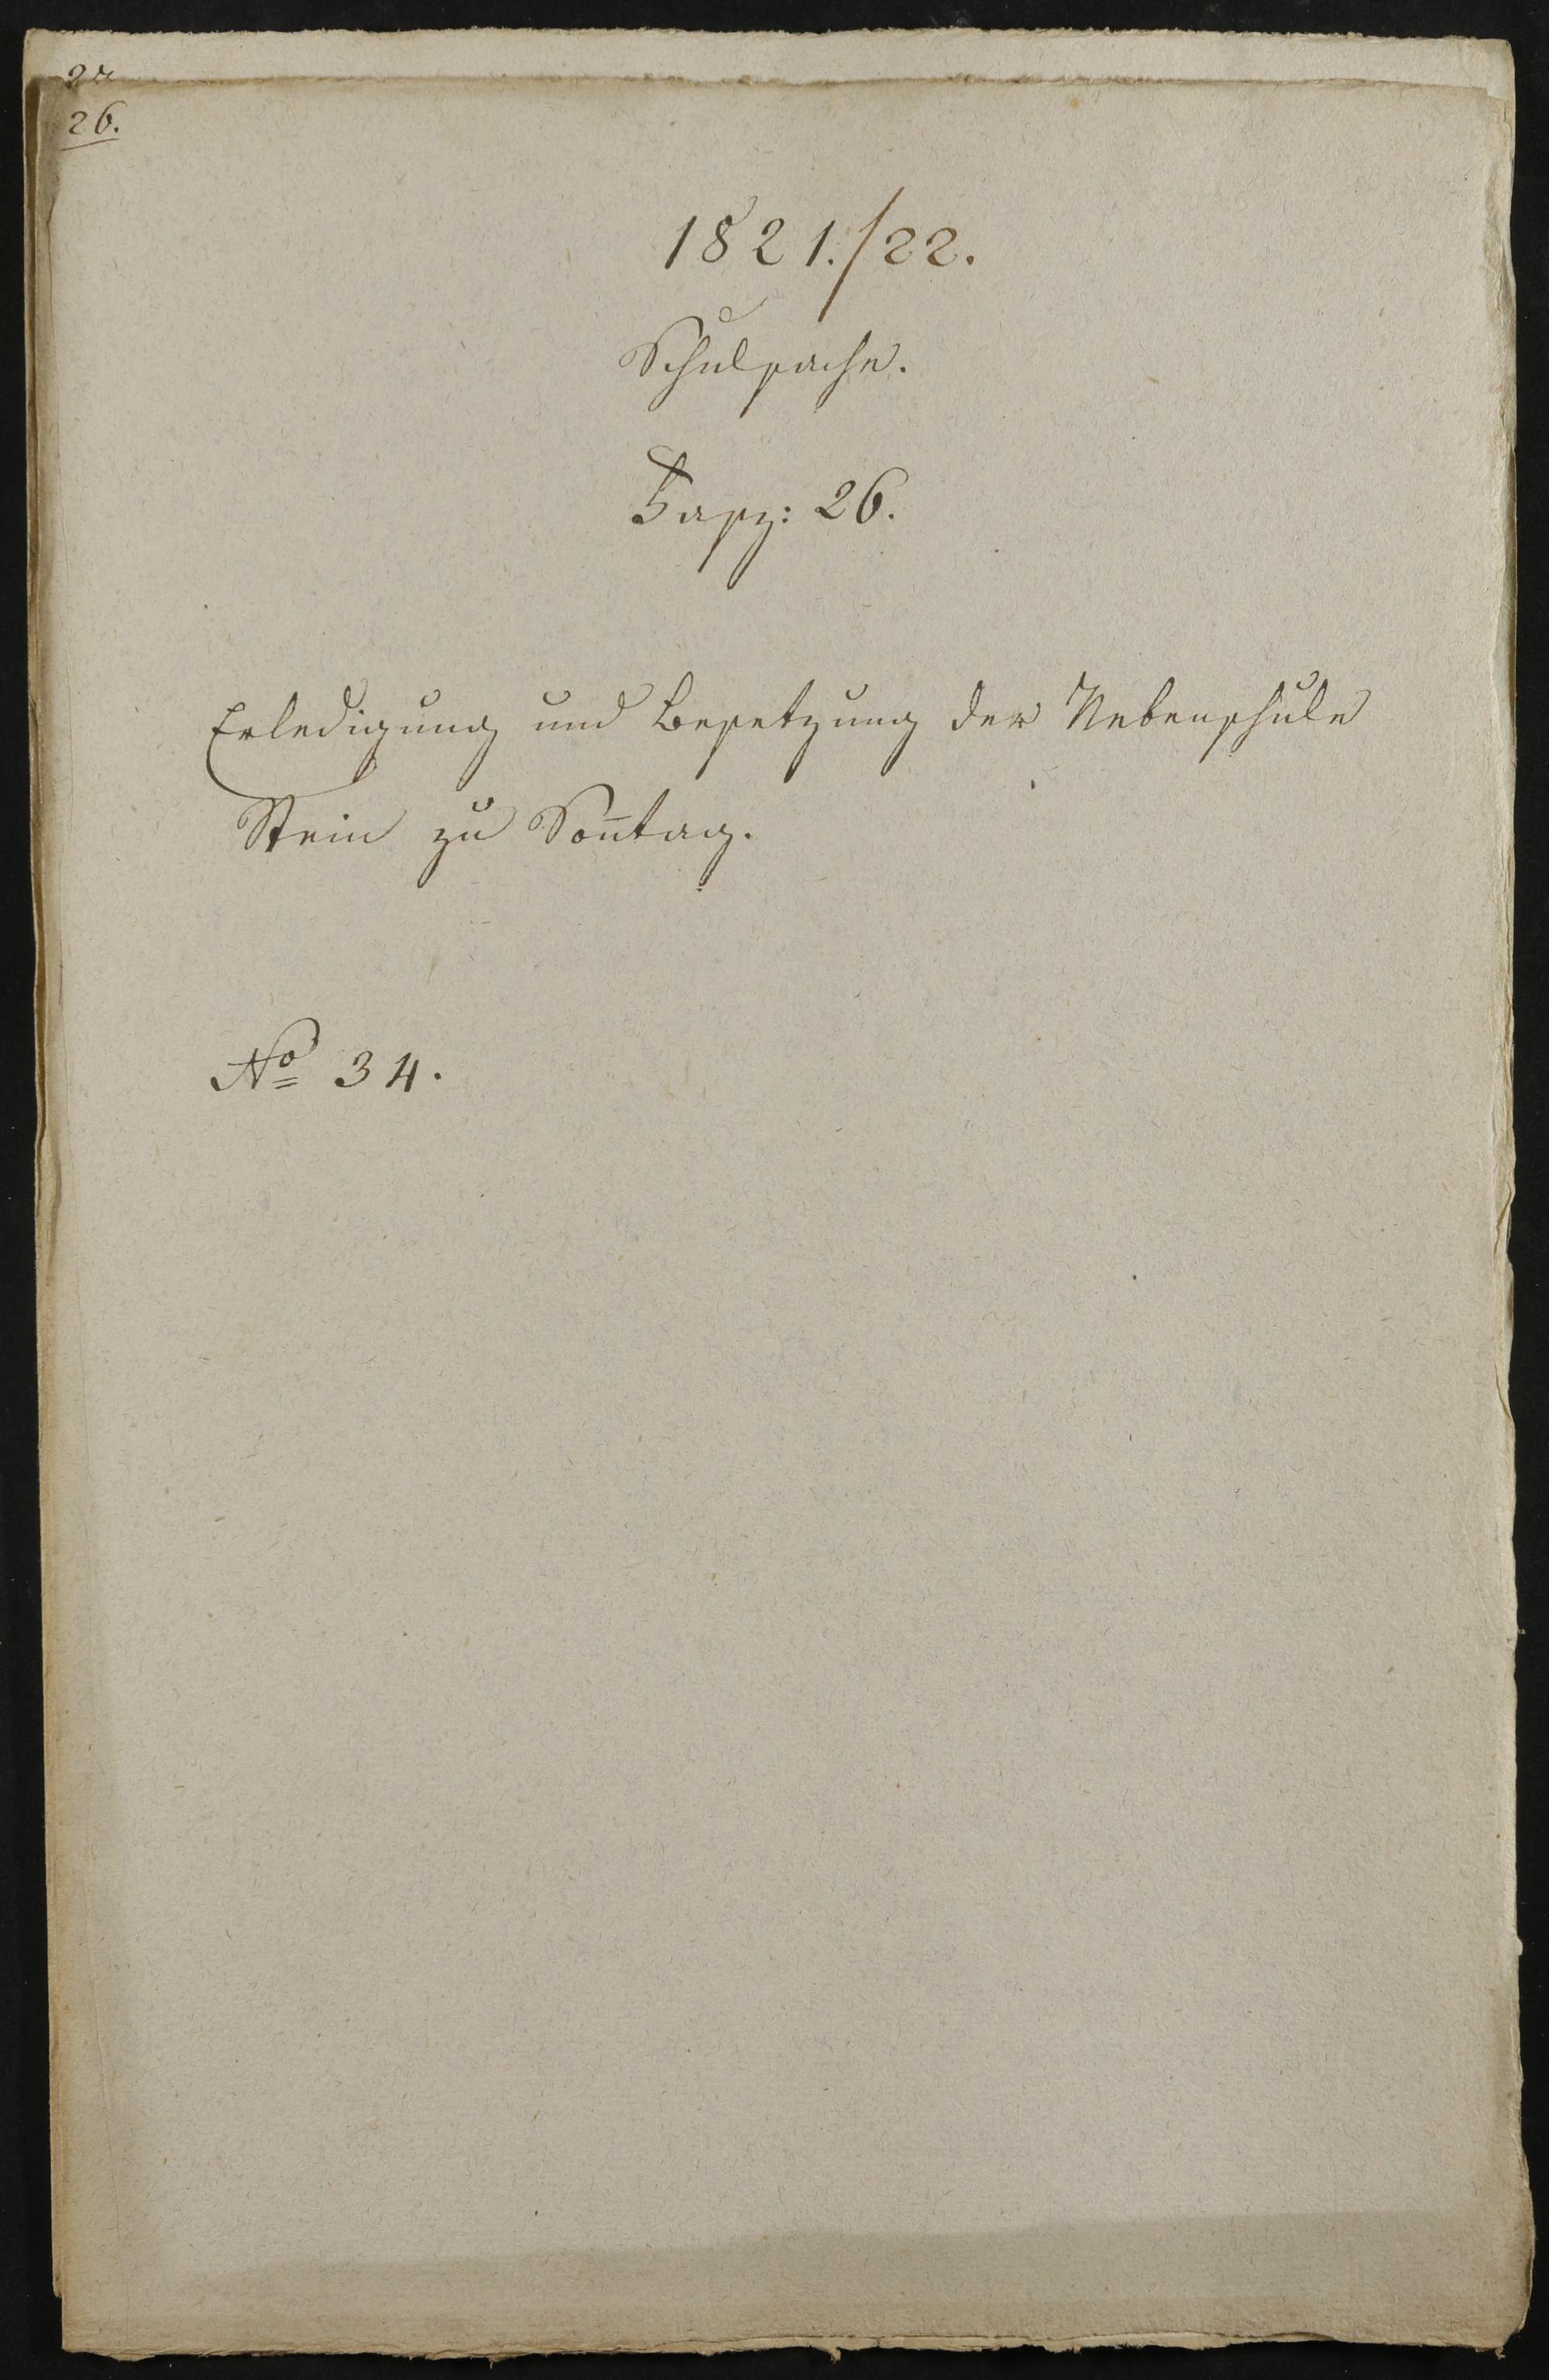 26.
1821./22.
Schulsache.
Fasz: 26.
Erledigung und Besetzung der Nebenschule
Stein zu Son̄tag.
No 34.